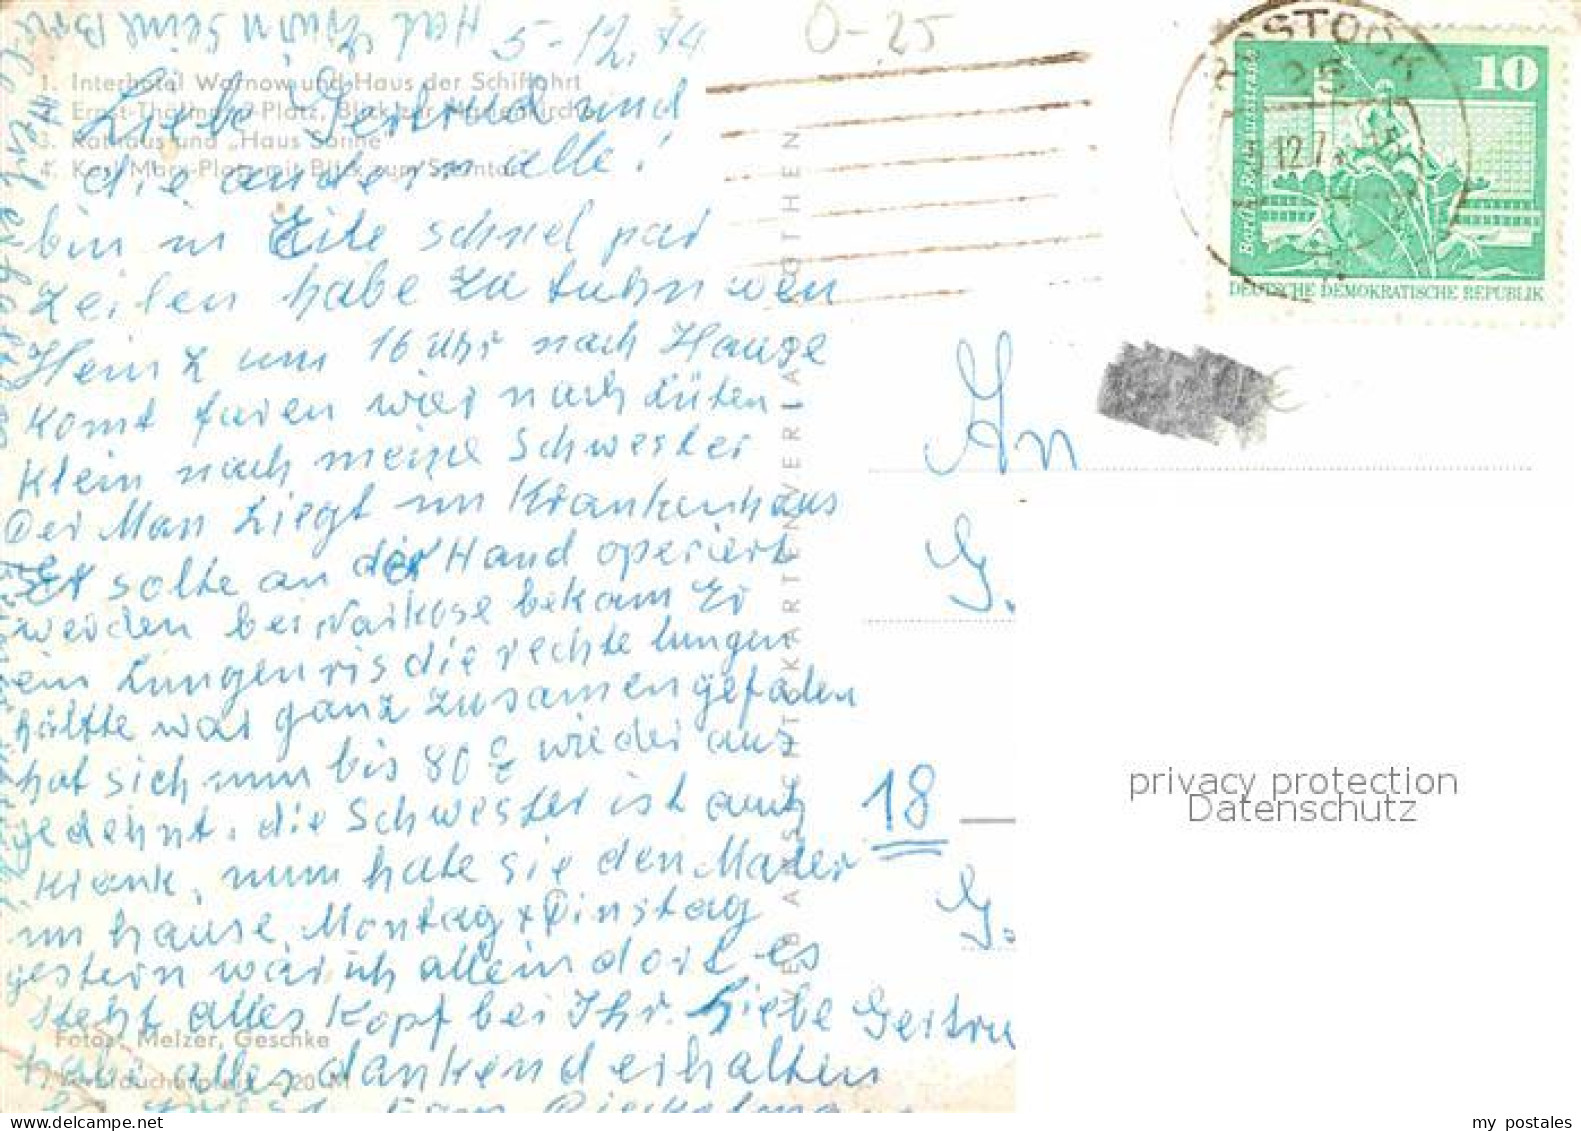 Hat
5-12.74
O-25
1. Interhotel Warnow und Haus der Schiffahrt
Ernst-Thälmann-Platz, Blick zur Marienkirche
3. Rathaus und „Haus Sonne"
4. Karl-Marx-Platz mit Blick zum Steintor
Liebe Gertrud und
die andern alle!
bin in Eile schnel par
Zeilen habe zu tuhn wen
Heinz um 16 Uhr nach Hause
komt faren wier nach Lüten
Klein nach meine Schwester
Der Man liegt im Krankenhaus
Er solte an der Hand operiert
werden bei Narkose bekam Er
ein Lungenris die rechte lungen
hälfte war ganz zusamengefalen
hat sich nun bis 80% wieder aus
gedehnt. die Schwester ist auch
krank, nun hate sie den Maler
im hause. Montag + Dinstag
gestern war ich allein dort es
steht alles Kopf bei Ihr. Liebe Gertru
habe alles dankend erhalten
Fotos: Melzer, Geschke
VEB ANSICHTSKARTENVERLAG KÖTHEN
ROSTOCK
25
12.7
10
Berlin Rathausstraße
DEUTSCHE DEMOKRATISCHE REPUBLIK
An
G.
18
G.
privacy protection
Datenschutz
my postales